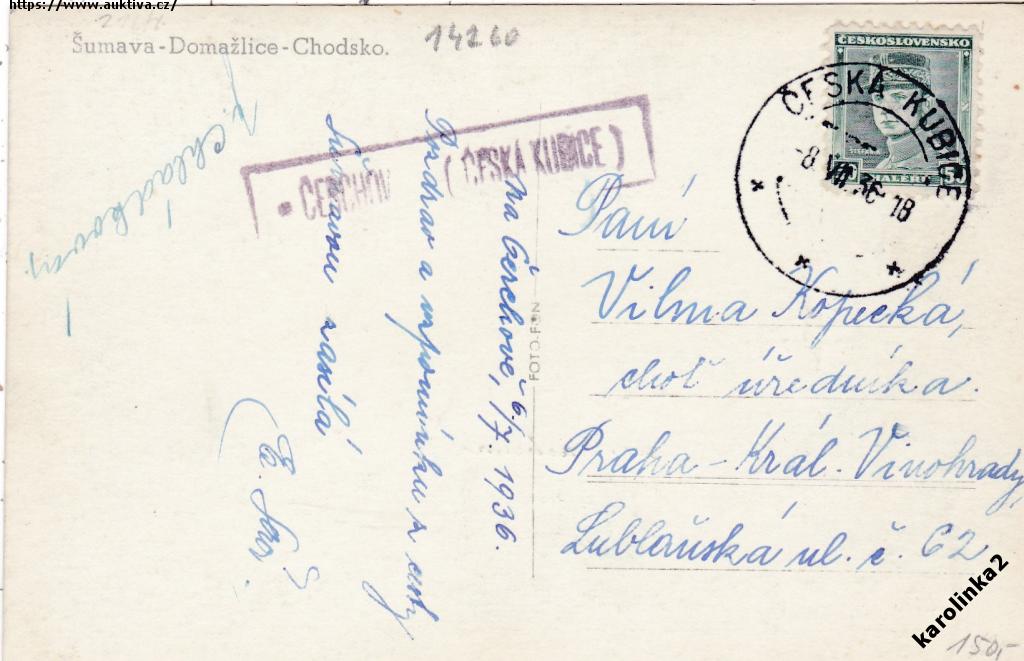 https://www.auktiva.cz/
Šumava-Domažlice-Chodsko.
14260
ČESKOSLOVENSKO
ČESKÁ KUBICE
-8 VII 36-18
ČERCHOV (ČESKÁ KUBICE)
Na Čerchově, 6./7. 1936.
Pozdrav a vzpomínku z cesty
Šumavou zasílá
FOTO-FON
Paní
Vilma Kopecká,
choť úředníka.
Praha - Král. Vinohrady
Lublaňská ul. č. 62
karolinka2
150,-